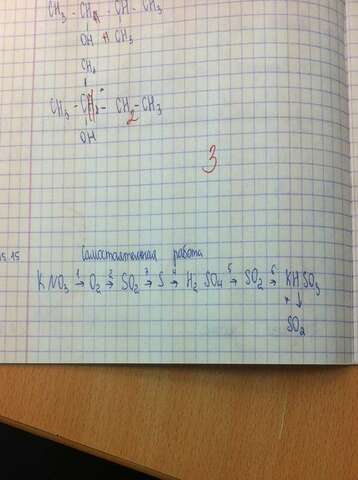 CH₃ - CH - CH - CH₃
OH CH₃
CH₃
CH₃ - C - CH₂ - CH₃
OH
3
15.15
Самостоятельная работа
KNO₃ 1→ O₂ 2→ SO₂ 3→ S 4→ H₂SO₄ 5→ SO₂ 6→ KHSO₃
↓
SO₂